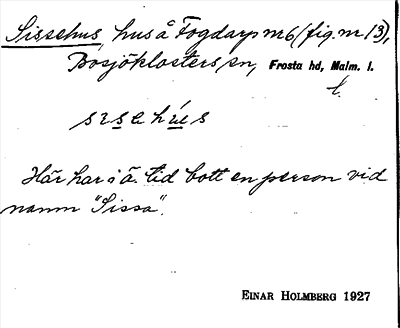 Sissehus, hus å Fogdarp nr 6 (fig. nr 13),
Bosjöklosters sn, Frosta hd, Malm. l.
sısehús
Här har i ä. tid bott en person vid
namn "Sissa".
EINAR HOLMBERG 1927